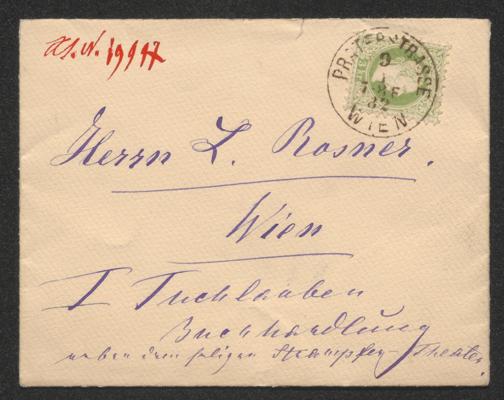 H.I.N. 19917
PRATERSTRASSE
9
1
82
WIEN
Herrn L. Rosner.
Wien
I Tuchlauben
Buchhandlung
neben dem seligen Strampfer-Theater.